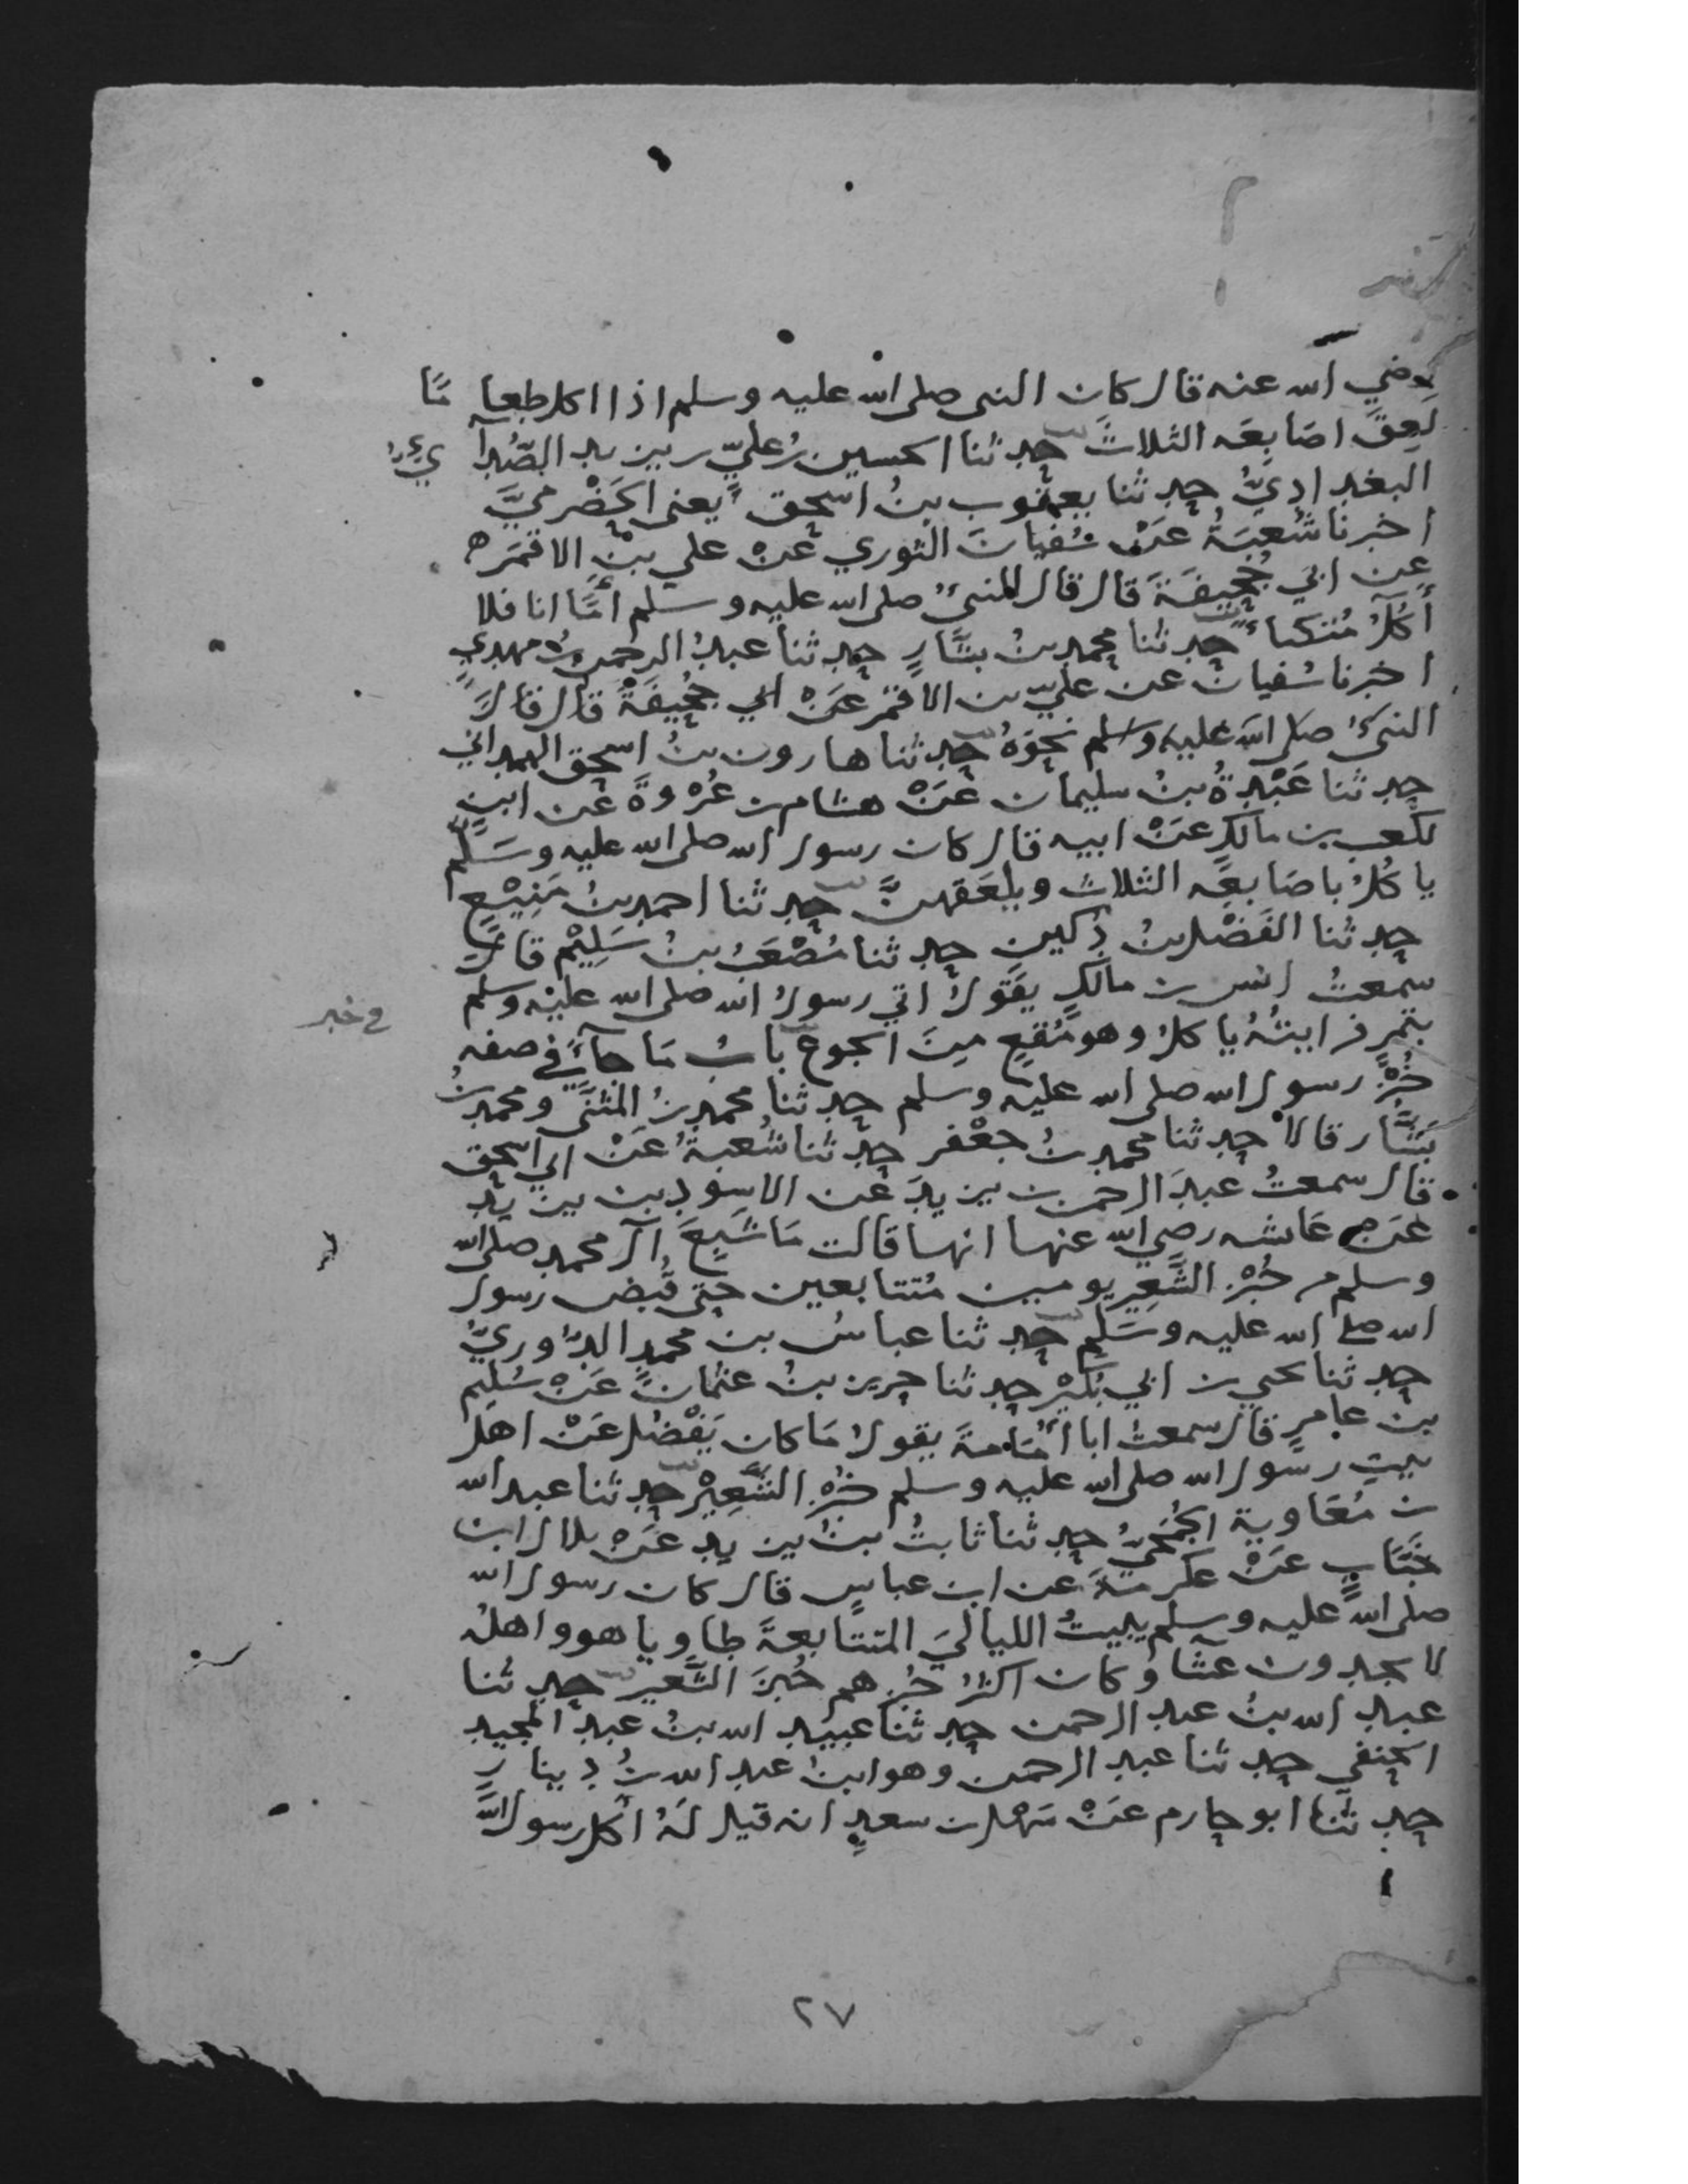 رضي الله عنه قال كان النبي صلى الله عليه وسلم اذا اكل طعاما
لعق اصَابِعَه الثلاثَ حدثنا الحسين بنُ عليّ بن يزيد الصُّدائيُّ
البغداديُّ حدثنا يعقوب بنُ اسحق يعني الحَضْرميَّ
اخبرنا شُعبَةُ عَنْ سُفيانَ الثوري عَنْ علي بنِ الاقمَر
عن ابي جُحيفَةَ قال قال النبيُّ صلى الله عليه وسلم أمَّا انا فلا
أكُلُ مُتكئا حدثنا محمد بنُ بشَّارٍ حدثنا عبدُ الرحمن بنُ مهديٍ
اخبرنا سُفيان عن عليّ بن الاقمَر عَنْ ابي جُحيفَةَ قال قال
النبيُّ صلى الله عليه وسلم نحوَهُ حدثنا هارون بنُ اسحق الهمداني
حدثنا عَبْدةُ بنُ سليمان عَنْ هشام بن عُرْوةَ عن ابنٍ
لكعب بن مالكٍ عَنْ ابيه قال كان رسول الله صلى الله عليه وسَلم
ياكُلُ باصَابعِه الثلاث ويلعَقهنَّ حدثنا احمد بنُ مَنِيْعٍ
حدثنا الفَضْل بنُ دُكين حدثنا مُصْعَبُ بنُ سَلِيْم قال
سمعتُ انس بن مالكٍ يقَولُ اتي رسولُ الله صلى الله عليْه وسلم
بتمرٍ فرايتُهُ ياكلُ وهو مُقعٍ مِنَ الجوع بابُ مَا جآءَ في صفه
خُبْزِ رسول الله صلى الله عليه وسلم حدثنا محمد بنُ المثنَّى ومحمد بنُ
بَشَّار قالا حدثنا محمد بنُ جعْفر حدثنا شُعبةُ عَنْ ابي اسحق
قال سمعتُ عبدَ الرحمن بن يزيدَ عن الاسود بن يزيد
عَنْ عَائشه رضي الله عنها انها قالت مَا شَبِعَ آل محمد صلى الله
وسلم من خُبْزِ الشَّعِيرِ يومين مُتتابعين حتى قُبض رسول
الله صلى الله عليه وسَلم حدثنا عباسُ بن محمدٍ الدُّوريُّ
حدثنا يحيى بن ابي بُكَيْر حدثنا حريز بنُ عثمانَ عَنْ سُلَيم
بن عامرٍ قال سمعتُ ابا أُمَامةَ يقولُ مَا كان يَفْضُل عَنْ اهل
بيتِ رسول الله صلى الله عليه وسلم خُبْزُ الشَّعِيْرِ حدثنا عبد الله
بن مُعَاوية الجُمَحيُّ حدثنا ثابتُ بنُ يزيد عَنْ هلال ابن
خَبَّابٍ عَنْ عكرمَةَ عن ابن عباسٍ قال كان رسول الله
صلى الله عليه وسلم يبيتُ اللياليَ المتتابعةَ طاويا هو واهلُه
لا يجدون عشآ وكان اكثرُ خُبزهم خُبزَ الشَّعير حدثنا
عبد الله بنُ عبد الرحمن حدثنا عبيد الله بنُ عبد المجيد
الحنفي حدثنا عبد الرحمن وهو ابنُ عبد الله بنُ دينارٍ
حدثنا ابو حازم عَنْ سَهْل بن سعدٍ انه قيل لَهُ أكل رسولُ الله
في خبز
٢٧